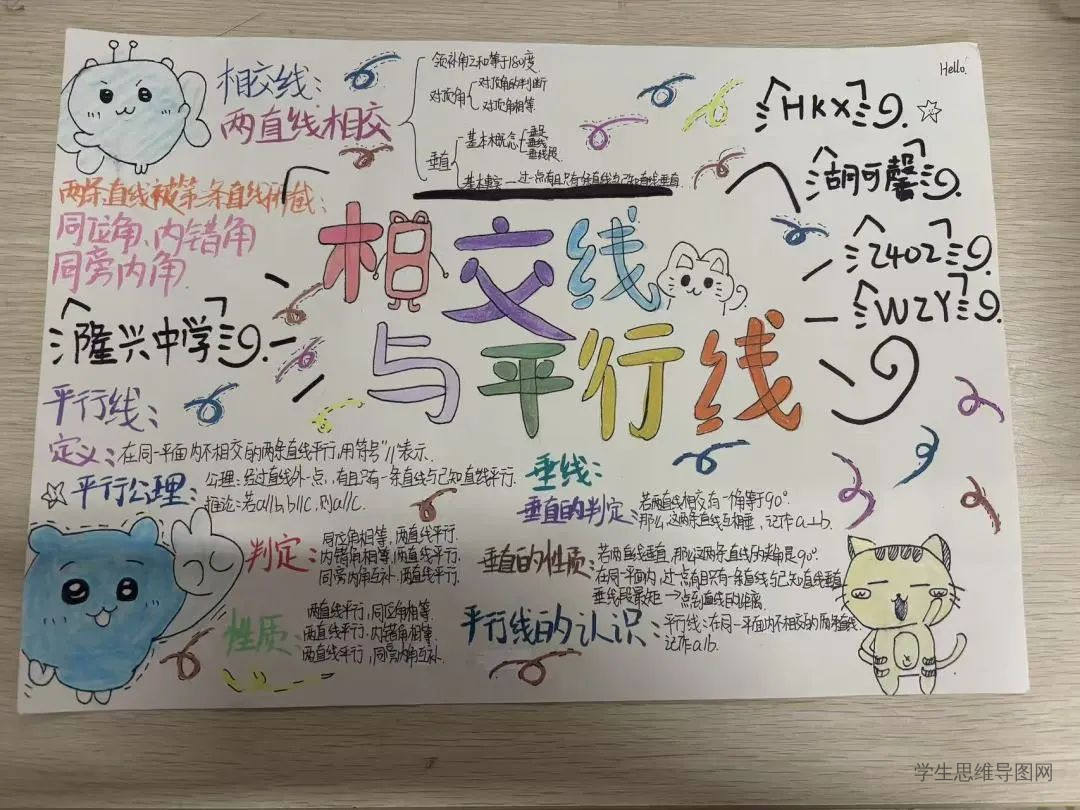 Hello!
相交线:
两直线相交
领补角之和等于180度
对顶角
对顶角的判断
对顶角相等
垂直
基本概念
垂足
垂线
垂线段
过一点有且只有一条直线与已知直线垂直.
HKX
胡可馨
2402
WZY
两条直线被第三条直线所截:
同位角、内错角
同旁内角
隆兴中学
相交线
与平行线
平行线:
定义:在同一平面内不相交的两条直线平行,用符号"//"表示.
平行公理:
公理:经过直线外一点,有且只有一条直线与已知直线平行.
推论:若a//b,b//c,则a//c.
判定:
同位角相等,两直线平行.
内错角相等,两直线平行.
同旁内角互补,两直线平行.
性质:
两直线平行,同位角相等.
两直线平行,内错角相等.
两直线平行,同旁内角互补.
垂线:
垂直的判定:
若两直线相交有一角等于90°
那么,这两条直线互相垂,记作a⊥b.
垂直的性质:
若两直线垂直,那么这两条直线的夹角是90°.
在同一平面内,过一点有且只有一条直线与已知直线垂直
垂线段最短→点到直线的距离.
平行线的认识:
平行线:在同一平面内不相交的两条直线.
记作a//b.
学生思维导图网